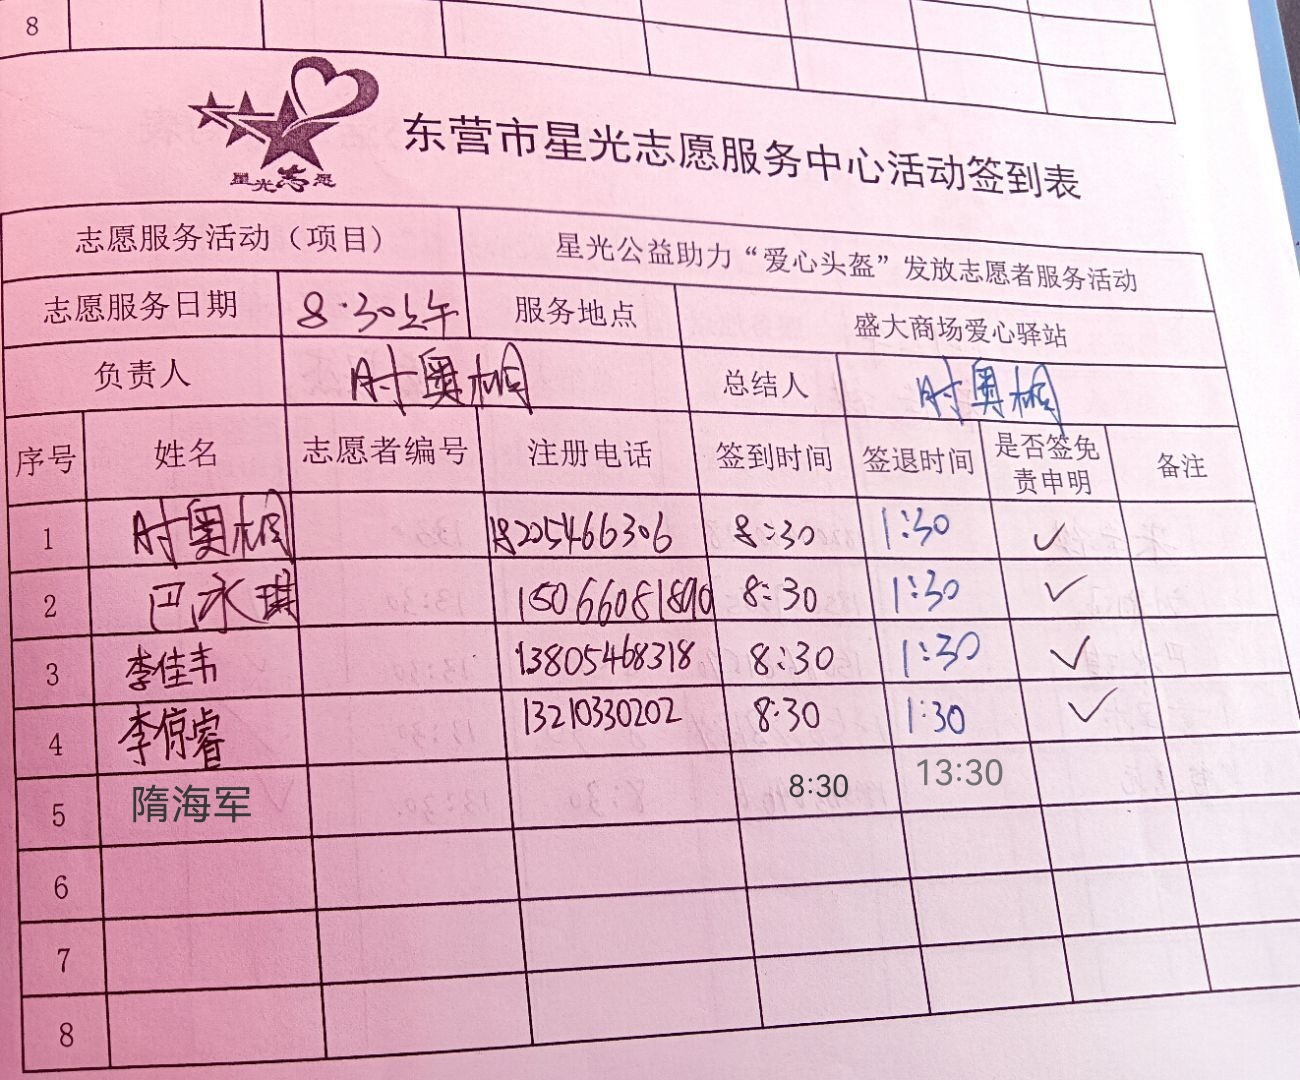 8
星光志愿
东营市星光志愿服务中心活动签到表
志愿服务活动（项目） 星光公益助力“爱心头盔”发放志愿者服务活动
志愿服务日期 8.30上午 服务地点 盛大商场爱心驿站
负责人 时奥桐 总结人 时奥桐
序号 姓名 志愿者编号 注册电话 签到时间 签退时间 是否签免责申明 备注
1 时奥桐 18225466306 8:30 1:30 ✓
2 巴永琪 15066081890 8:30 1:30 ✓
3 李佳韦 13805468318 8:30 1:30 ✓
4 李倞睿 13210330202 8:30 1:30 ✓
5 隋海军 8:30 13:30
6
7
8